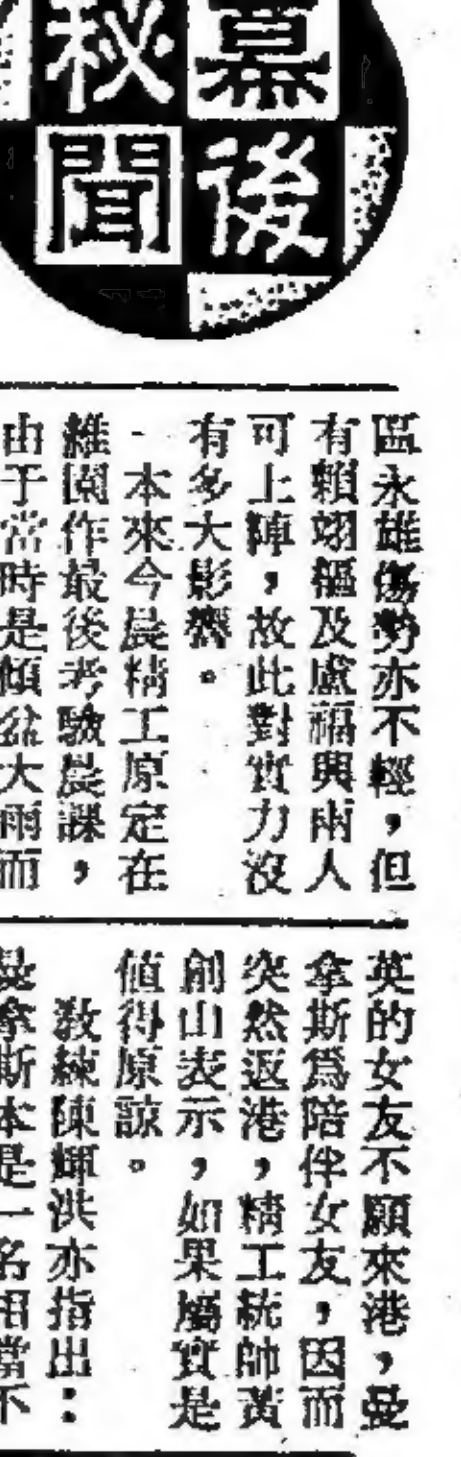 幕後
秘聞
區永雄傷勢亦不輕，但
有賴翊樞及盧福興兩人
可上陣，故此對實力沒
有多大影響。
本來今晨精工原定在
維園作最後考驗晨課，
由于當時是傾盆大雨而
英的女友不願來港，曼
拿斯為陪伴女友，因而
突然返港，精工統帥黃
創山表示，如果屬實是
值得原諒。
教練陳輝洪亦指出：
曼拿斯本是一名相當不